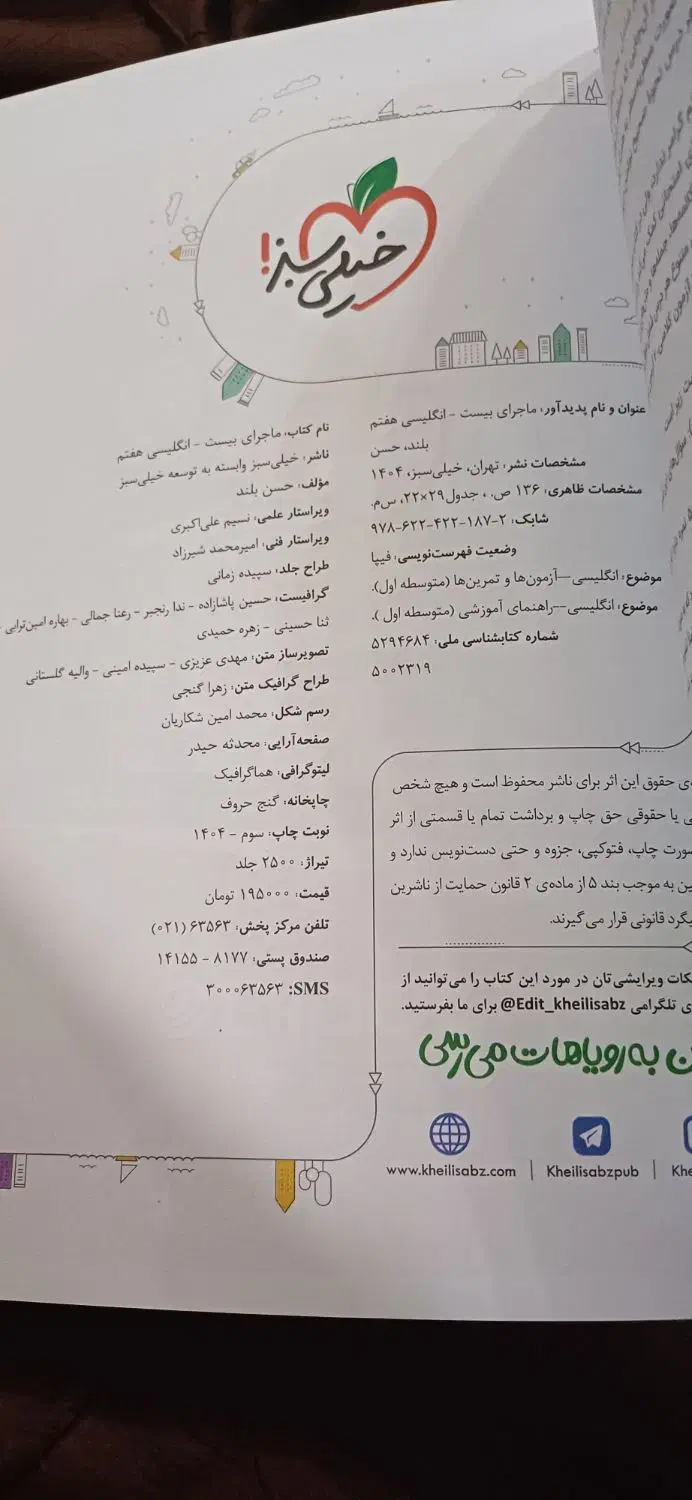 خیلی سبز!
عنوان و نام پدیدآور: ماجرای بیست - انگلیسی هفتم
بلند، حسن
مشخصات نشر: تهران، خیلی‌سبز، ۱۴۰۴
مشخصات ظاهری: ۱۳۶ ص. ، جدول ۲۹×۲۲، س‌م.
شابک: ۲-۱۸۷-۴۲۲-۶۲۲-۹۷۸
وضعیت فهرست‌نویسی: فیپا
موضوع: انگلیسی—آزمون‌ها و تمرین‌ها (متوسطه اول).
موضوع: انگلیسی--راهنمای آموزشی (متوسطه اول ).
شماره کتابشناسی ملی: ۵۲۹۴۶۸۴
۵۰۰۲۳۱۹
نام کتاب: ماجرای بیست - انگلیسی هفتم
ناشر: خیلی‌سبز وابسته به توسعه خیلی‌سبز
مؤلف: حسن بلند
ویراستار علمی: نسیم علی‌اکبری
ویراستار فنی: امیرمحمد شیرزاد
طراح جلد: سپیده زمانی
گرافیست: حسین پاشازاده - ندا رنجبر - رعنا جمالی - بهاره امین‌ترابی -
ثنا حسینی - زهره حمیدی
تصویرساز متن: مهدی عزیزی - سپیده امینی - والیه گلستانی
طراح گرافیک متن: زهرا گنجی
رسم شکل: محمد امین شکاریان
صفحه‌آرایی: محدثه حیدر
لیتوگرافی: هماگرافیک
چاپخانه: گنج حروف
نوبت چاپ: سوم - ۱۴۰۴
تیراژ: ۲۵۰۰ جلد
قیمت: ۱۹۵۰۰۰ تومان
تلفن مرکز پخش: ۶۳۵۶۳ (۰۲۱)
صندوق پستی: ۸۱۷۷ - ۱۴۱۵۵
SMS: ۳۰۰۰۶۳۵۶۳
حقوق این اثر برای ناشر محفوظ است و هیچ شخص
یا حقوقی حق چاپ و برداشت تمام یا قسمتی از اثر
صورت چاپ، فتوکپی، جزوه و حتی دست‌نویس ندارد و
به موجب بند ۵ از ماده‌ی ۲ قانون حمایت از ناشرین
قانونی قرار می‌گیرند.
ویرایشی‌تان در مورد این کتاب را می‌توانید از
تلگرامی @Edit_kheilisabz برای ما بفرستید.
به رویاهات می‌رسی
www.kheilisabz.com | Kheilisabzpub |